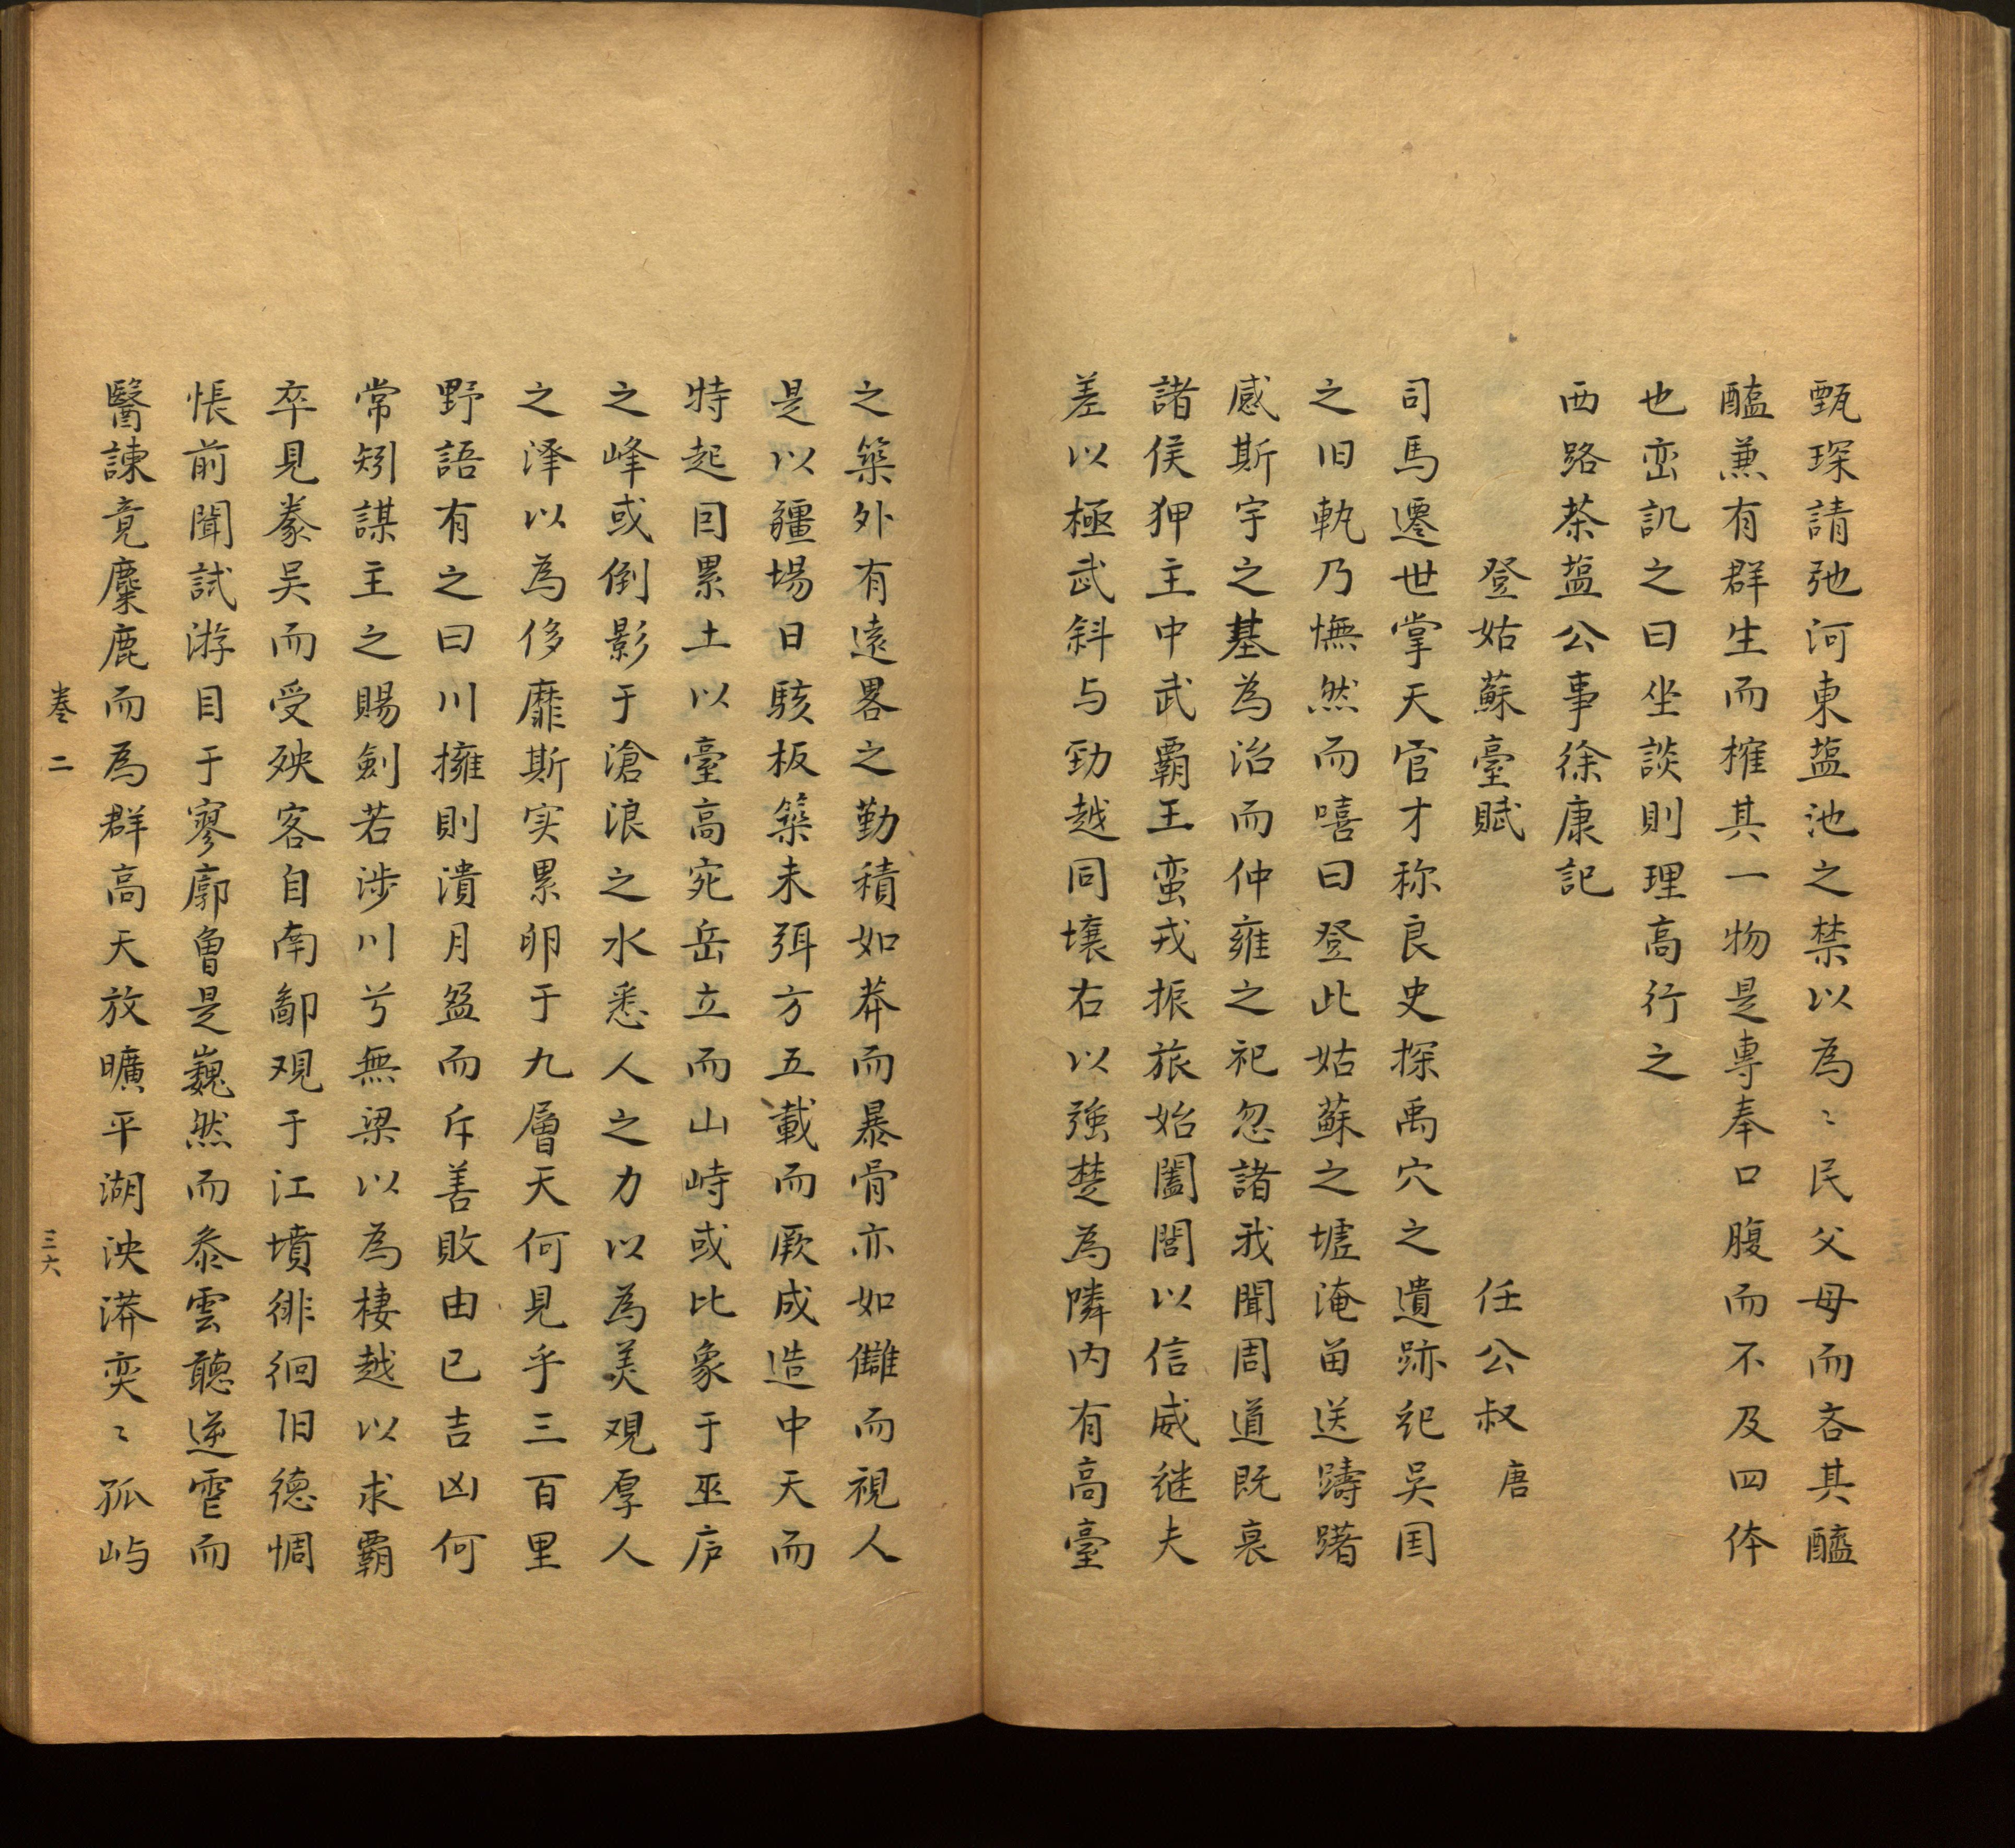 甄琛請弛河東塩池之禁以為〻民父母而吝其醯
醯兼有群生而榷其一物是專奉口腹而不及四体
也峦訊之曰坐談則理高行之
西路茶塩公事徐康記
登姑蘇臺賦
任公叔 唐
司馬遷世掌天官才称良史探禹穴之遺跡紀吳囯
之旧軌乃憮然而嘻曰登此姑蘇之墟淹留送躊躇
感斯宇之基為治而仲雍之祀忽諸我聞周道既衰
諸侯狎主中武霸王蛮戎振旅始闔閭以信威継夫
差以極武斜与勁越同壤右以強楚為隣内有高臺
之築外有遠畧之勤積如莽而暴骨亦如讎而視人
是以疆場日駭板築未弭方五載而厥成造中天而
特起因累土以臺高宛岳立而山峙或比象于巫庐
之峰或倒影于滄浪之水悉人之力以為美观厚人
之泽以為侈靡斯实累卵于九層天何見乎三百里
野語有之曰川擁則潰月盈而斥善敗由已吉凶何
常矧謀主之賜劍若涉川兮無梁以為棲越以求霸
卒見豢吴而受殃客自南鄙观于江墳徘徊旧德惆
悵前聞試游目于寥廓曾是巍然而叅雲聽逆雹而
醫諫竟麋鹿而為群高天放曠平湖泱漭奕〻孤屿
卷二
三六